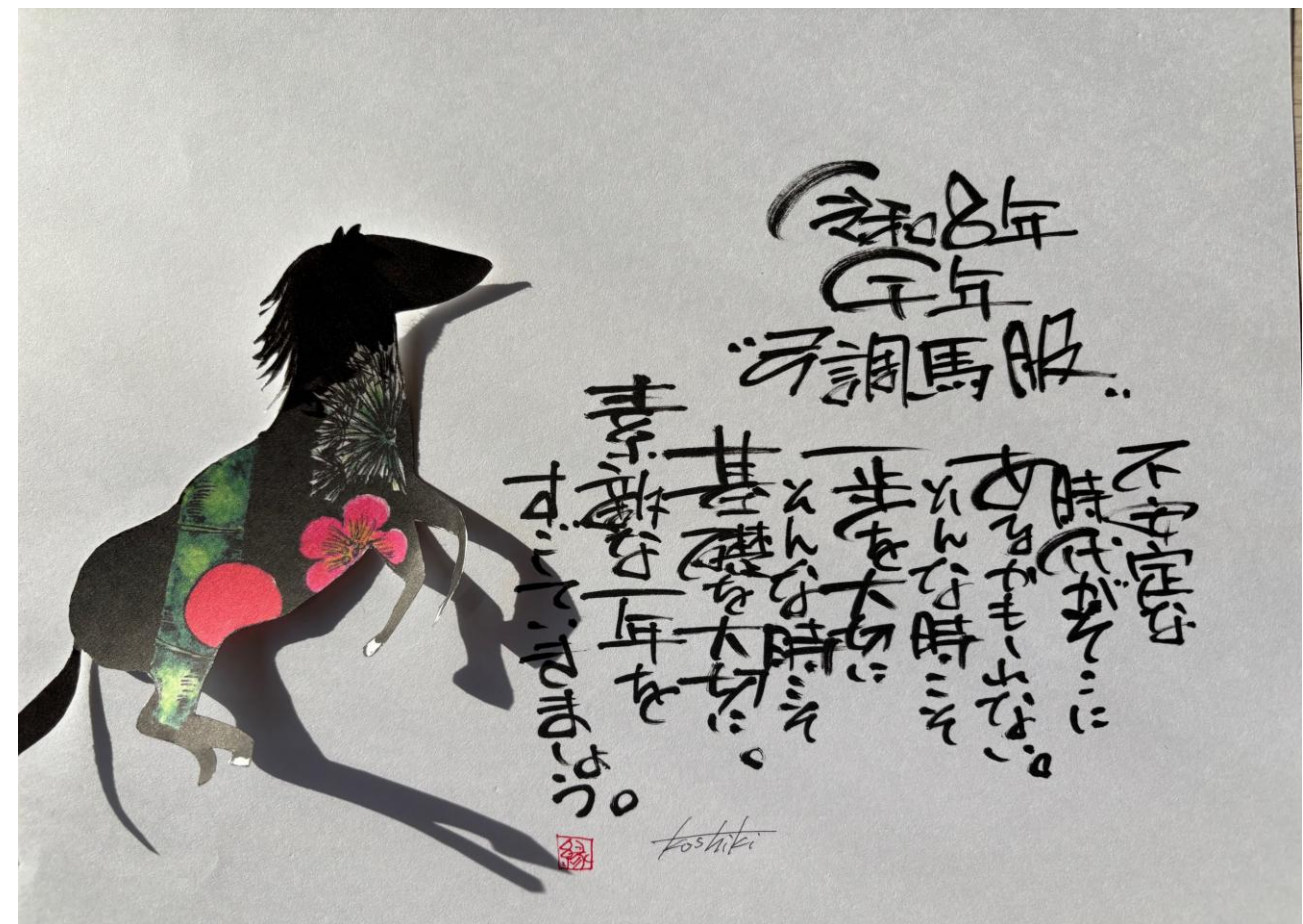 令和8年
午年
“弓調馬服”
不安定な
時代がそこに
あるかもしれない。
そんな時こそ
一歩を大切に
そんな時こそ
基礎を大切に。
な一年を
すごしていきましょう。
縁
Koshiki